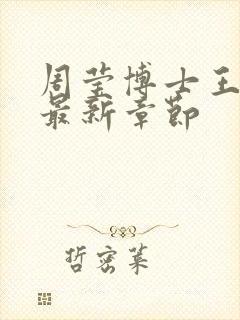 周莹博士王
最新章节
哲密莱